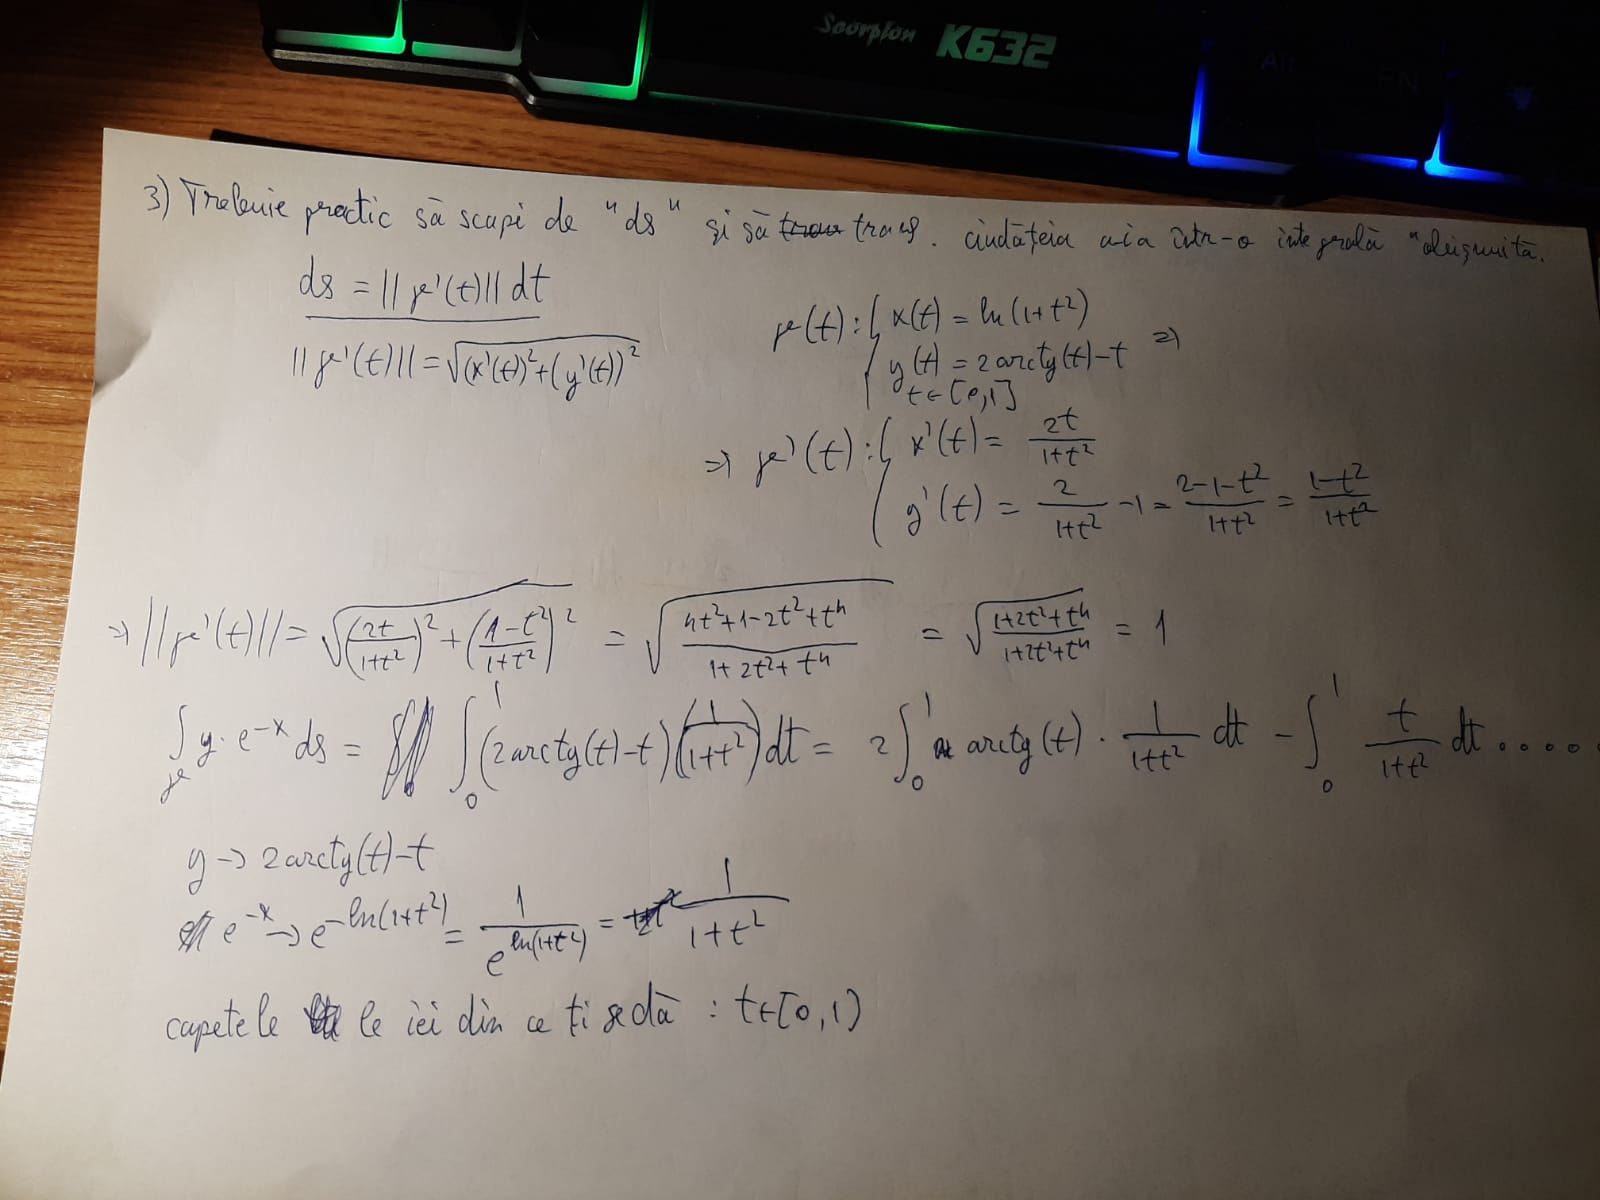 Scorpion K632
Alt FN
3) Trebuie practic să scapi de "ds" și să transf. ciudățeia aia într-o integrală "obișnuită.
ds = ||γ'(t)|| dt
||γ'(t)|| = √(x'(t))²+(y'(t))²
γ(t): { x(t) = ln(1+t²)
y(t) = 2arctg(t)-t ⇒
t∈[0,1]
⇒ γ'(t): { x'(t) = 2t/(1+t²)
y'(t) = 2/(1+t²) -1 = (2-1-t²)/(1+t²) = (1-t²)/(1+t²)
⇒ ||γ'(t)|| = √((2t/(1+t²))² + ((1-t²)/(1+t²))²) = √((4t²+1-2t²+t⁴)/(1+2t²+t⁴)) = √((1+2t²+t⁴)/(1+2t²+t⁴)) = 1
∫_γ y·e^(-x) ds = ∫₀¹ (2arctg(t)-t)(1/(1+t²))dt = 2∫₀¹ arctg(t)·1/(1+t²) dt - ∫₀¹ t/(1+t²) dt.....
y → 2arctg(t)-t
e^(-x) → e^(-ln(1+t²)) = 1/e^(ln(1+t²)) = 1/(1+t²)
capetele le iei din ce ți se dă : t∈[0,1)